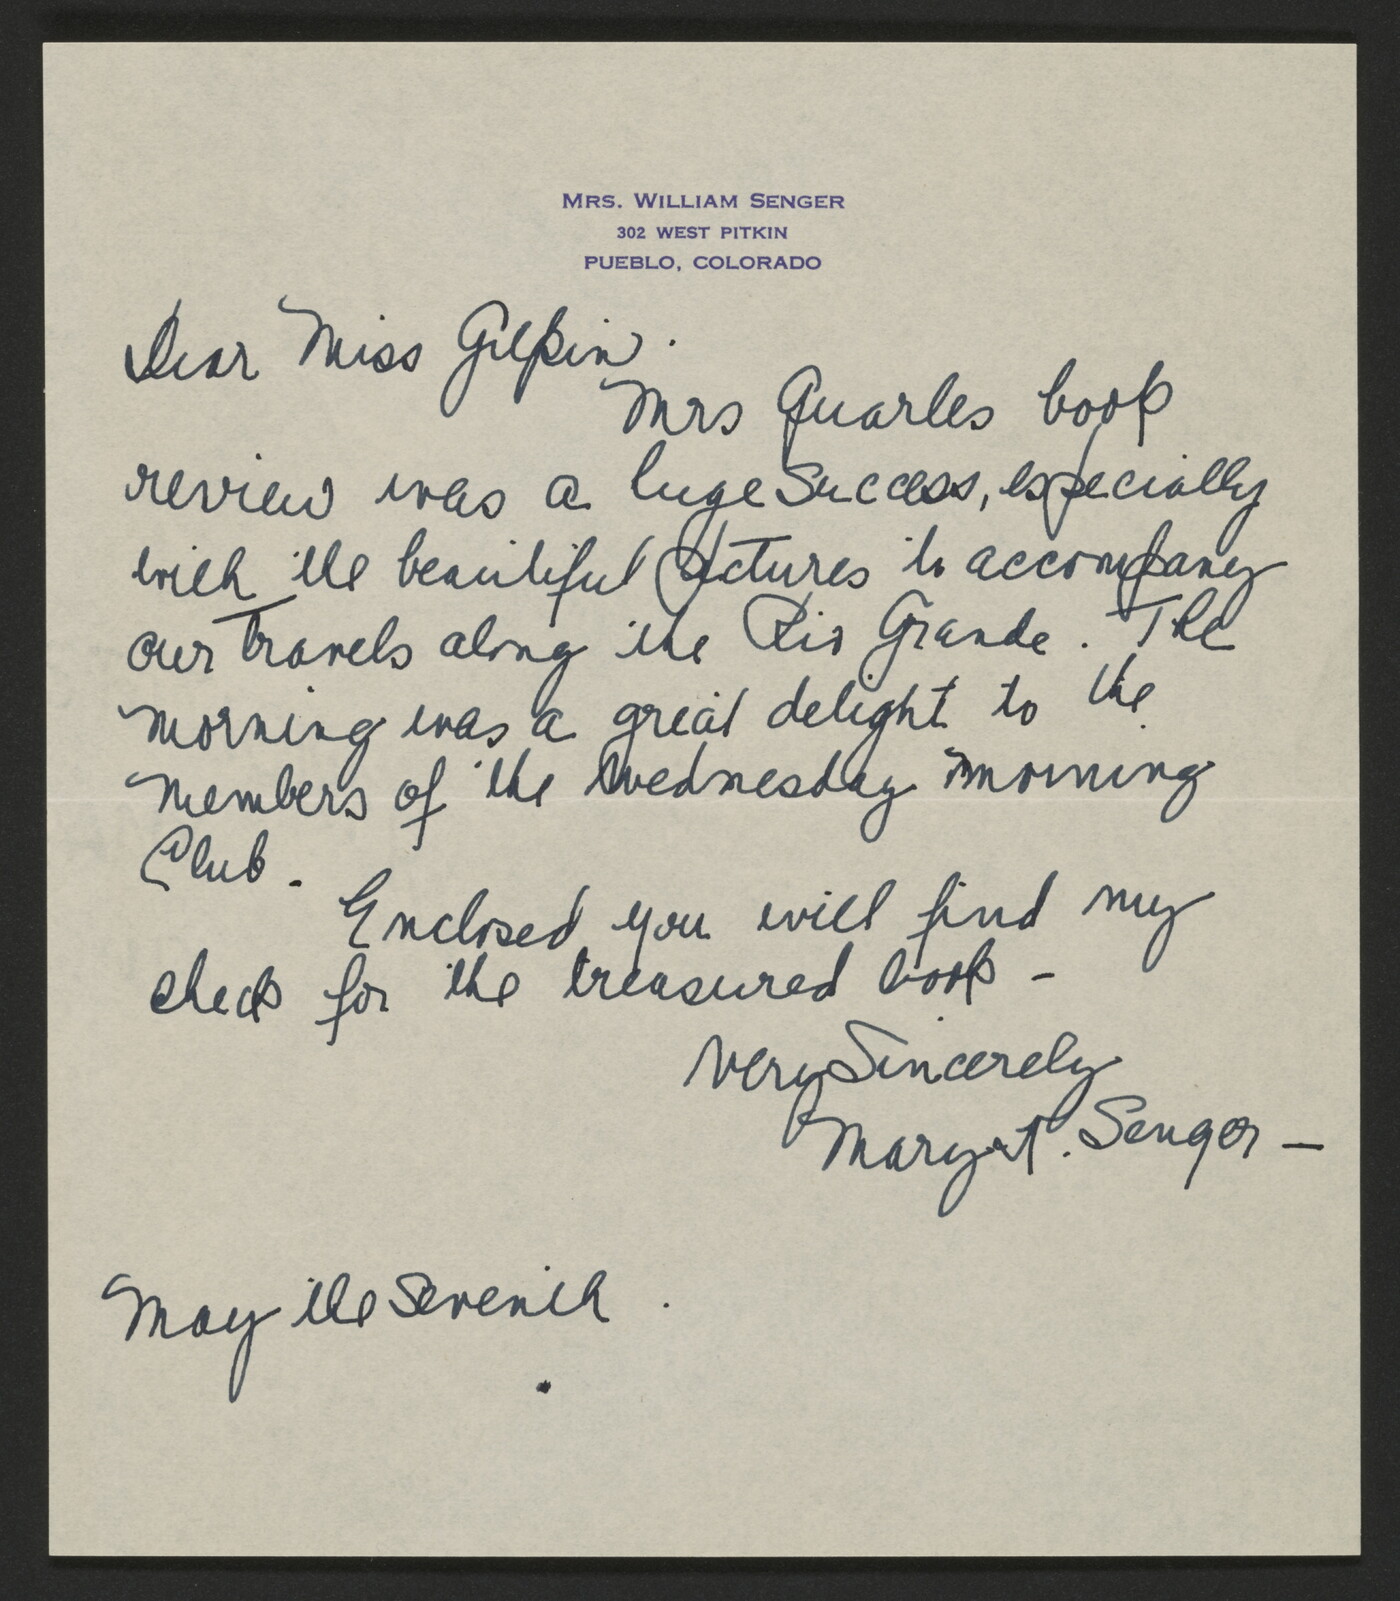 MRS. WILLIAM SENGER
302 WEST PITKIN
PUEBLO, COLORADO
Dear Miss Gilpin.
Mrs Quarles book
review was a huge success, especially
with the beautiful pictures to accompany
our travels along the Rio Grande. The
morning was a great delight to the
members of the Wednesday morning
Club.
Enclosed you will find my
check for the treasured book -
Very Sincerely
Margret. Senger -
May the Seventh.